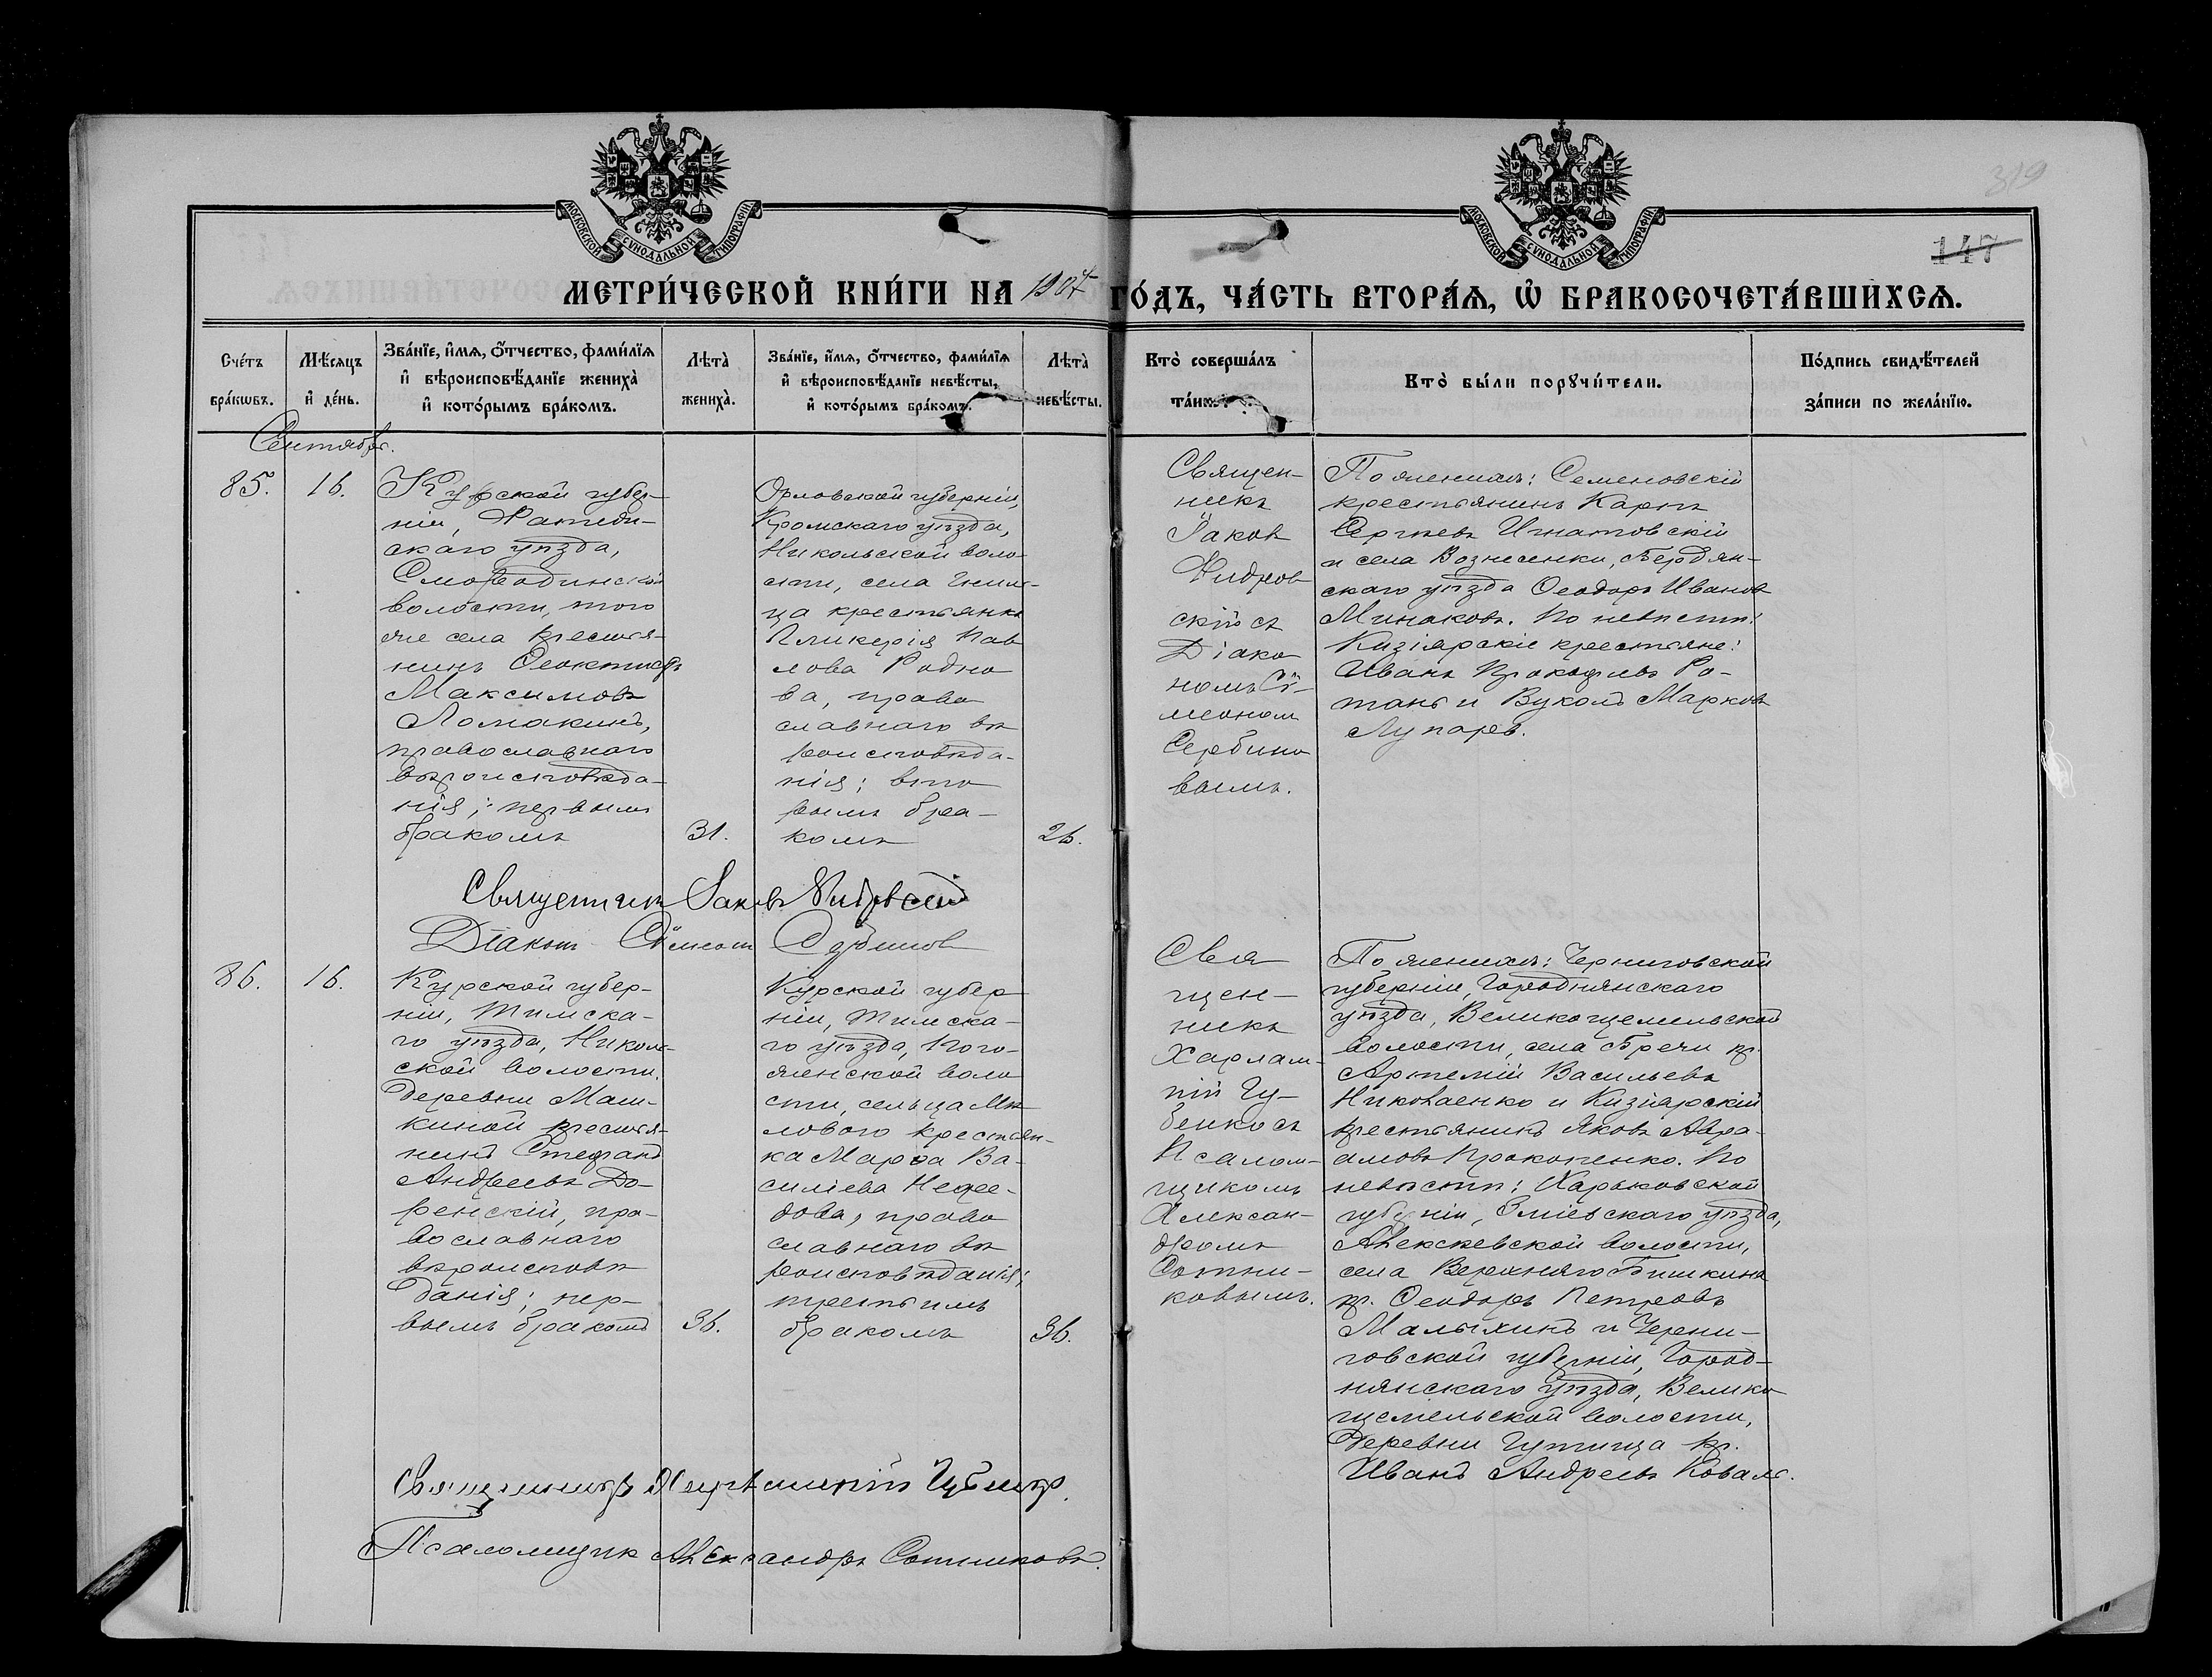 МОСКОВСКОЙ СѴНОДАЛЬНОЙ ТИПОГРАФІИ.
МОСКОВСКОЙ СѴНОДАЛЬНОЙ ТИПОГРАФІИ.
319
147
МЕТРИ́ЧЕСКОЙ КНИ́ГИ НА 1904 ГО́ДЪ, ЧА́СТЬ ВТОРА́Ѧ, Ѡ҆ БРАКОСОЧЕТА́ВШИХСѦ.
Счéтъ бра́кѡвъ.
Мѣ́сяцъ и҆ де́нь.
Зва́нїе, и҆́мѧ, ѻ҆́тчество, фами́лїѧ
и҆ вѣроисповѣ́данїе жениха̀
и҆ кото́рымъ бра́комъ.
Лѣта̀ жениха̀.
Зва́нїе, и҆́мѧ, ѻ҆́тчество, фами́лїѧ
и҆ вѣроисповѣ́данїе невѣ́сты,
и҆ кото́рымъ бра́комъ.
Лѣта̀ невѣ́сты.
Кто̀ соверша́лъ
Кто̀ бы́ли порꙋчи́тели.
По́дпись свидѣ́телей
за́писи по жела́нїю.
Сентябрь.
85.
16.
Курской губер-
ніи,
скаго уѣзда,
Смородинской
волости, того
же села крестья-
нинъ Ѳеоктистъ
Максимовъ
Ломакинъ,
православнаго
вѣроисповѣда-
нія; первымъ
бракомъ
31.
Орловской губерніи,
Кромскаго уѣзда,
Никольской воло-
сти, села Гнили-
ца крестьянка
Гликерія Пав
лова Родно
ва, право
славнаго вѣ
роисповѣда-
нія; вто
рымъ бра-
комъ
26.
Священ-
никъ
Іаковъ
скій съ
Діако
номъ Сѵ-
меономъ
Сербино
вымъ.
По женихѣ: Семеновскій
крестьянинъ Карпъ
Сергѣевъ Игнатовскій
и села Вознесенки, Бердян-
скаго уѣзда Ѳеодоръ Ивановъ
Минаковъ. По невѣстѣ:
Кизіярскіе крестьяне:
Иванъ Прокофьевъ Ро-
манъ и Вуколъ Марковъ
Лупарев.
Священникъ Іаковъ
Діаконъ Сѵмеонъ Сербиновъ
86.
16.
Курской губер-
ніи, Тимска-
го уѣзда, Николь-
ской волости,
деревни Маш-
киной крестья-
нинъ Стефанъ
Андреевъ До-
ренскій, пра-
вославнаго
вѣроисповѣ
данія; пер-
вымъ бракомъ
36.
Курской губер
ніи, Тимска-
го уѣзда, Пого-
женской воло
сти, сельца Мѣ
лового крестьян-
ка Марѳа Ва-
силіева Нефе-
дова, право
славнаго вѣ
роисповѣданія;
третьимъ
бракомъ
36.
Свя
щен-
никъ
Харлам-
пій Гу-
бенко съ
Псалом-
щикомъ
Алексан-
дромъ
Сотни-
ковымъ.
По женихѣ: Черниговской
губерніи, Городнянскаго
уѣзда, Великощемельской
волости, села Бречи кр.
Артемій Васильевъ
Николаенко и Кизіярскій
крестьянинъ Яковъ Авра-
амовъ Прокопенко. По
невѣстѣ: Харьковской
губерніи, Зміевскаго уѣзда,
Алексѣевской волости,
села Верхняго Бишкина
кр. Ѳеодоръ Петровъ
Малыхинъ и Черни-
говской губерніи, Город-
нянскаго уѣзда, Велико
щемельской волости,
деревни Гутища кр.
Иванъ Андреевъ Коваль.
Священникъ Харлампій Губенко.
Псаломщик Александръ Сотниковъ.